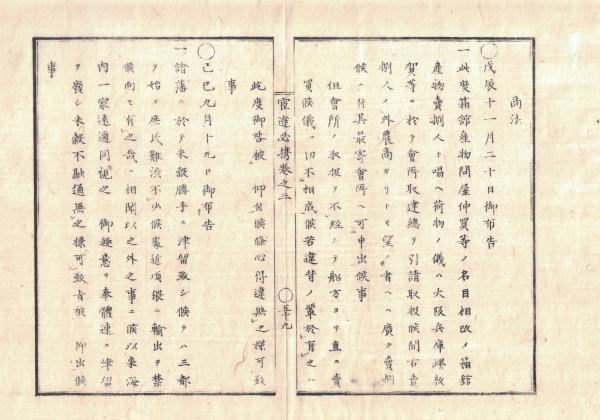 商法
○戊辰十一月二十日御布告
一此度箱館産物問屋仲買等ノ名目相改メ箱館
産物賣捌人ト唱ヘ荷物ノ儀ハ大阪兵庫堺敦
賀等ニ於テ會所取建總テ引請取扱候間右賣
捌人ノ外農商タリトモ望ノ者ヘハ廣ク賣捌
候ニ付其最寄會所ヘ可申出候事
但會所ノ取扱ヲ不經ニテ船方ヨリ直ニ賣
買候儀一切不相成候若違背ノ輩於有之ハ
宦途必携巻之三
○五十九
此度御咎被　仰付候條心得違無之様可致
事
○己巳九月十九日御布告
一諸藩ニ於テ米穀勝手ニ津留致シ候テハ三都
ヲ始メ庶民難渋不少候處近頃猥ニ輸出ヲ禁
候向モ有之哉ニ相聞以之外之事ニ候以来海
内一家遠邇同視之　御趣意ヲ奉體速ニ津留
ヲ廢シ米穀不融通無之様可致旨被　仰出候
事